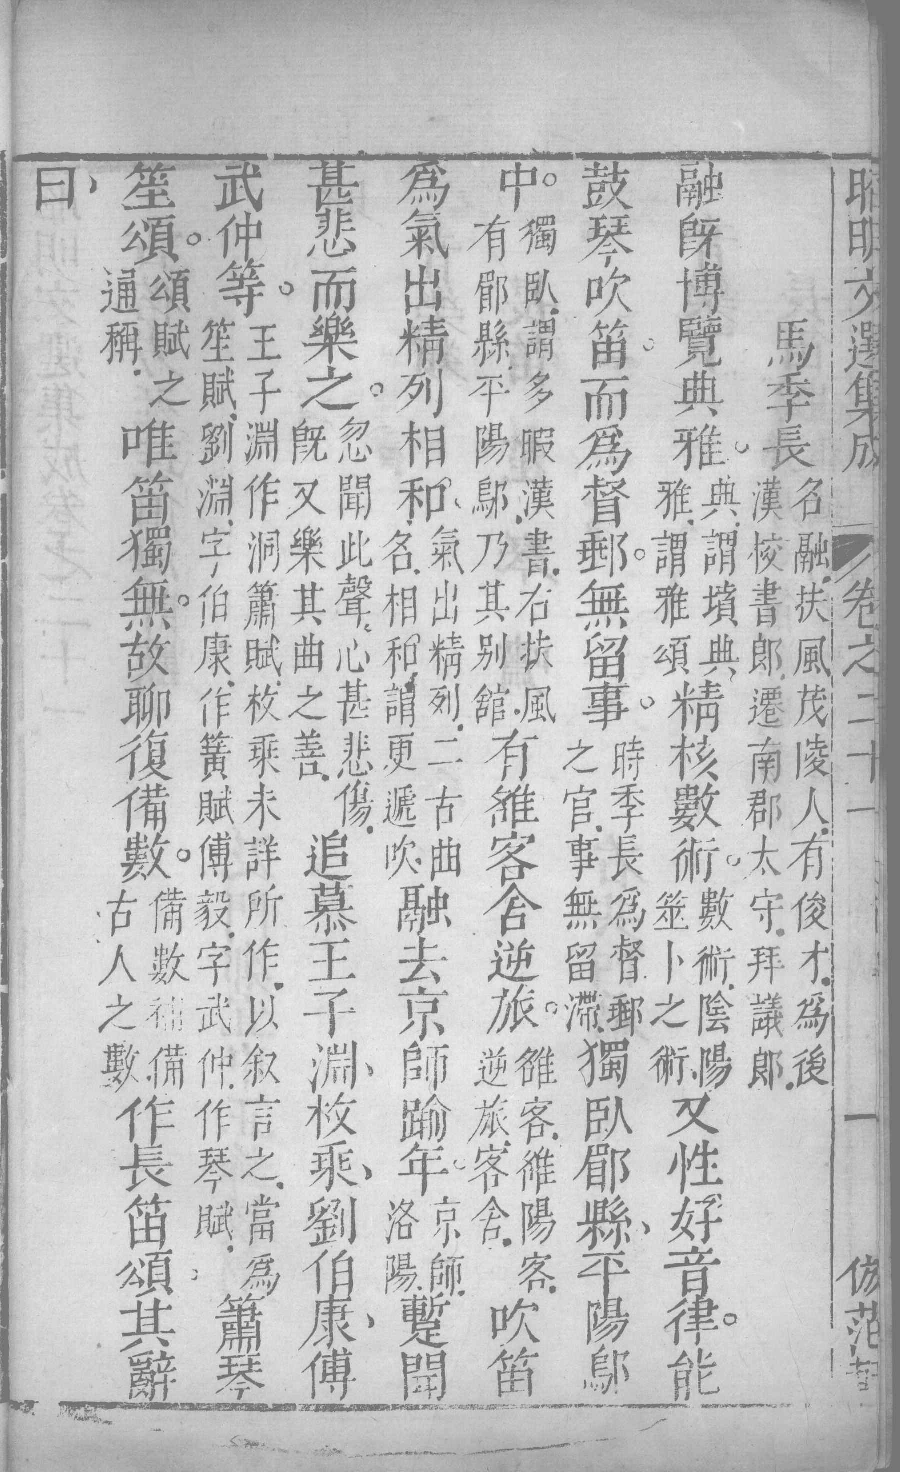 昭明文選集成 卷之二十一 一 倣范軒
馬季長 名融.扶風茂陵人.有俊才.爲後漢校書郎.遷南郡太守.拜議郎.
融旣博覽典雅。典.謂墳典.雅.謂雅頌.精核數術。數術.陰陽筮卜之術.又性好音律。能
鼓琴吹笛。而爲督郵。無留事。時季長爲督郵之官.事無留滯.獨臥郿縣、平陽鄔
中。獨臥.謂多暇.漢書.右扶風有郿縣.平陽鄔.乃其别舘.有雒客舍逆旅。雒客.雒陽客.逆旅.客舍.吹笛
爲氣出精列相和、氣出精列.二古曲名.相和.謂更遞吹.融去京師踰年。京師.洛陽.蹔聞
甚悲而樂之。忽聞此聲.心甚悲傷.旣又樂其曲之善.追慕王子淵、枚乘、劉伯康、傅
武仲等。王子淵作洞簫賦.枚乘未詳所作.以叙言之.當爲笙賦.劉淵.字伯康.作簧賦.傅毅.字武仲.作琴賦.簫琴
笙頌。頌賦之通稱.唯笛獨無。故聊復備數。備數.補備古人之數作長笛頌其辭
曰、